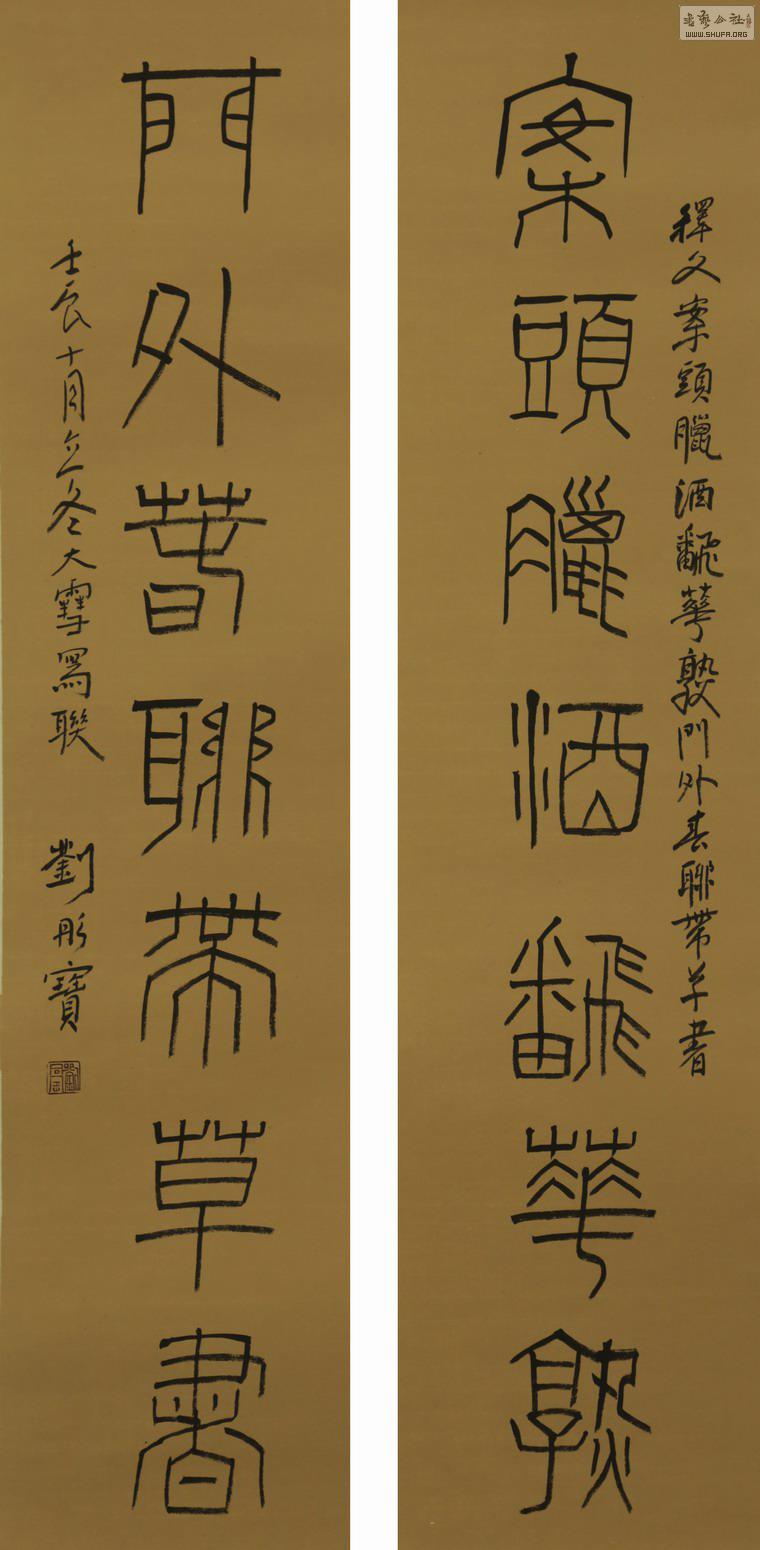 案頭臘酒飜華孰
釋文案頭臘酒飜華孰門外春聯帶草書
門外萅聯帶草書
壬辰十月立冬大雪寫聯 劉彤寶
WWW.SHUFA.ORG